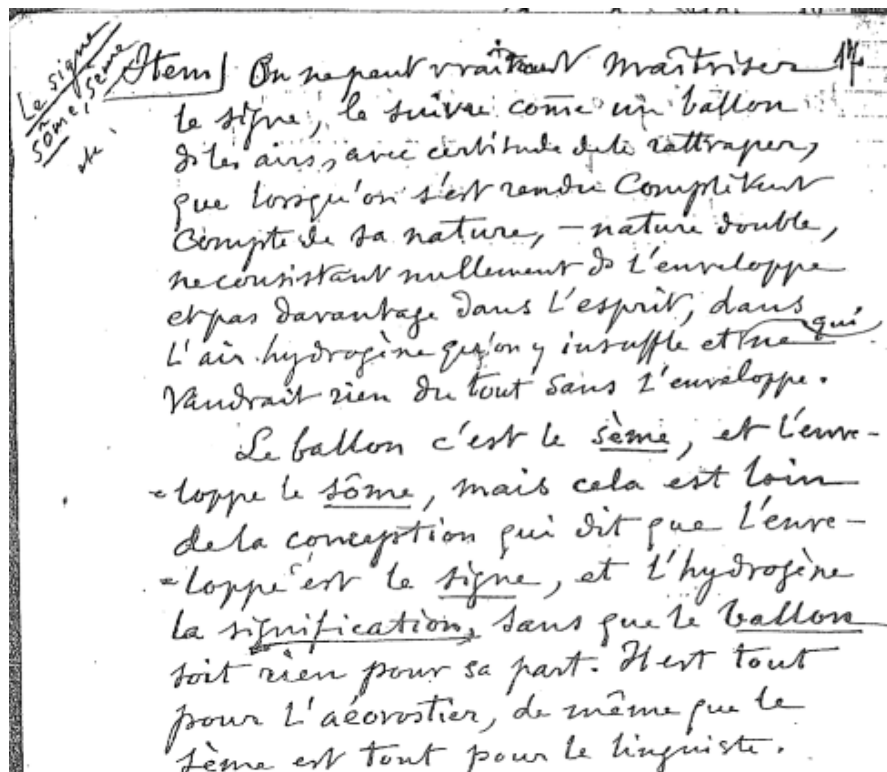 Le signe
sôme, sème
etc.
17
Item On ne peut vraiment maîtriser
le signe, le suivre come un ballon
ds les airs, avec certitude de le rattraper,
que lorsqu'on s'est rendu complètement
compte de sa nature, – nature double,
ne consistant nullement ds l'enveloppe
et pas davantage dans l'esprit, dans
l'air hydrogène qu'on y insuffle et qui ne
vaudrait rien du tout sans l'enveloppe.
Le ballon c'est le sème, et l'enve-
=loppe le sôme, mais cela est loin
de la conception qui dit que l'enve-
=loppe est le signe, et l'hydrogène
la signification, sans que le ballon
soit rien pour sa part. Il est tout
pour l'aérostier, de même que le
sème est tout pour le linguiste.